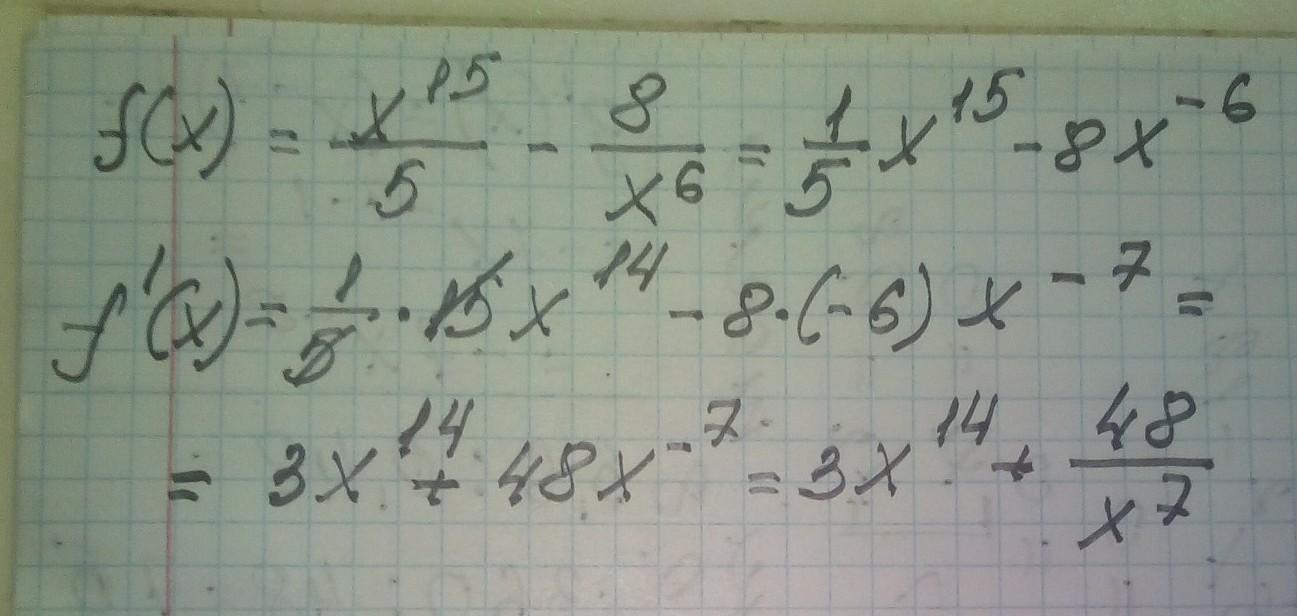 f(x) = x^15/5 - 8/x^6 = 1/5 x^15 - 8x^-6
f'(x) = 1/5 · 15x^14 - 8·(-6) x^-7 =
= 3x^14 + 48x^-7 = 3x^14 + 48/x^7